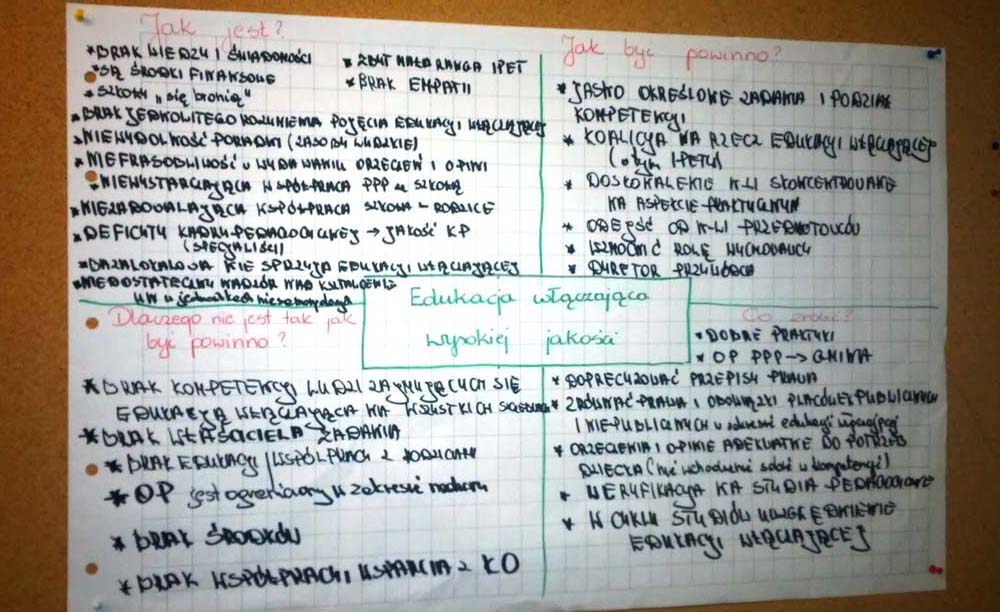 Jak jest?
* BRAK WIEDZY I ŚWIADOMOŚCI
* SĄ ŚRODKI FINANSOWE
* SZKOŁY „się bronią"
* ZBYT MAŁA RANGA IPET
* BRAK EMPATII
* BRAK JEDNOLITEGO ROZUMIENIA POJĘCIA EDUKACJI WŁĄCZAJĄCEJ
* NIEWYDOLNOŚĆ PORADNI (ZASOBY LUDZKIE)
* NIEFRASOBLIWOŚĆ w WYDAWANIU ORZECZEŃ I OPINII
* NIEWYSTARCZAJĄCA WSPÓŁPRACA PPP ze SZKOŁĄ
* NIEZADOWALAJĄCA WSPÓŁPRACA SZKOŁA – RODZICE
* DEFICYTY KADRY PEDAGOGICZNEJ → JAKOŚĆ KP
(SPECJALIŚCI)
* BAZA LOKALOWA NIE SPRZYJA EDUKACJI WŁĄCZAJĄCEJ
* NIEDOSTATECZNY NADZÓR NAD KSZTAŁCENIEM
UW w jednostkach niesamorządowych
Jak być powinno?
* JASNO OKREŚLONE ZADANIA I PODZIAŁ
KOMPETENCJI
* KOALICJA NA RZECZ EDUKACJI WŁĄCZAJĄCEJ
(w tym IPETU)
* DOSKONALENIE N-LI SKONCENTROWANE
NA ASPEKCIE PRAKTYCZNYM
* ODEJŚĆ OD N-LI PRZEDMIOTOWCÓW
* WZMOCNIĆ ROLĘ WYCHOWAWCY
* DYREKTOR PRZYWÓDCA
Edukacja włączająca
wysokiej jakości
Dlaczego nie jest tak jak
być powinno?
* BRAK KOMPETENCJI LUDZI ZAJMUJĄCYCH SIĘ
EDUKACJĄ WŁĄCZAJĄCĄ NA WSZYSTKICH
* BRAK WŁAŚCICIELA ZADANIA
* BRAK EDUKACJI / WSPÓŁPRACY Z RODZICAMI
* OP jest ograniczony w zakresie nadzoru
* BRAK ŚRODKÓW
* BRAK WSPÓŁPRACY I WSPARCIA Z KO
Co zrobić?
* DOBRE PRAKTYKI
* OP PPP → GMINA
* DOPRECYZOWAĆ PRZEPISY PRAWA
* ZRÓWNAĆ PRAWA I OBOWIĄZKI PLACÓWEK PUBLICZNYCH
I NIEPUBLICZNYCH w zakresie edukacji włączającej
* ORZECZENIA I OPINIE ADEKWATNE DO POTRZEB
DZIECKA (nie wchodzenie sobie w kompetencje)
* WERYFIKACJA NA STUDIA PEDAGOGICZNE
* W CYKLU STUDIÓW UWZGLĘDNIENIE
EDUKACJI WŁĄCZAJĄCEJ